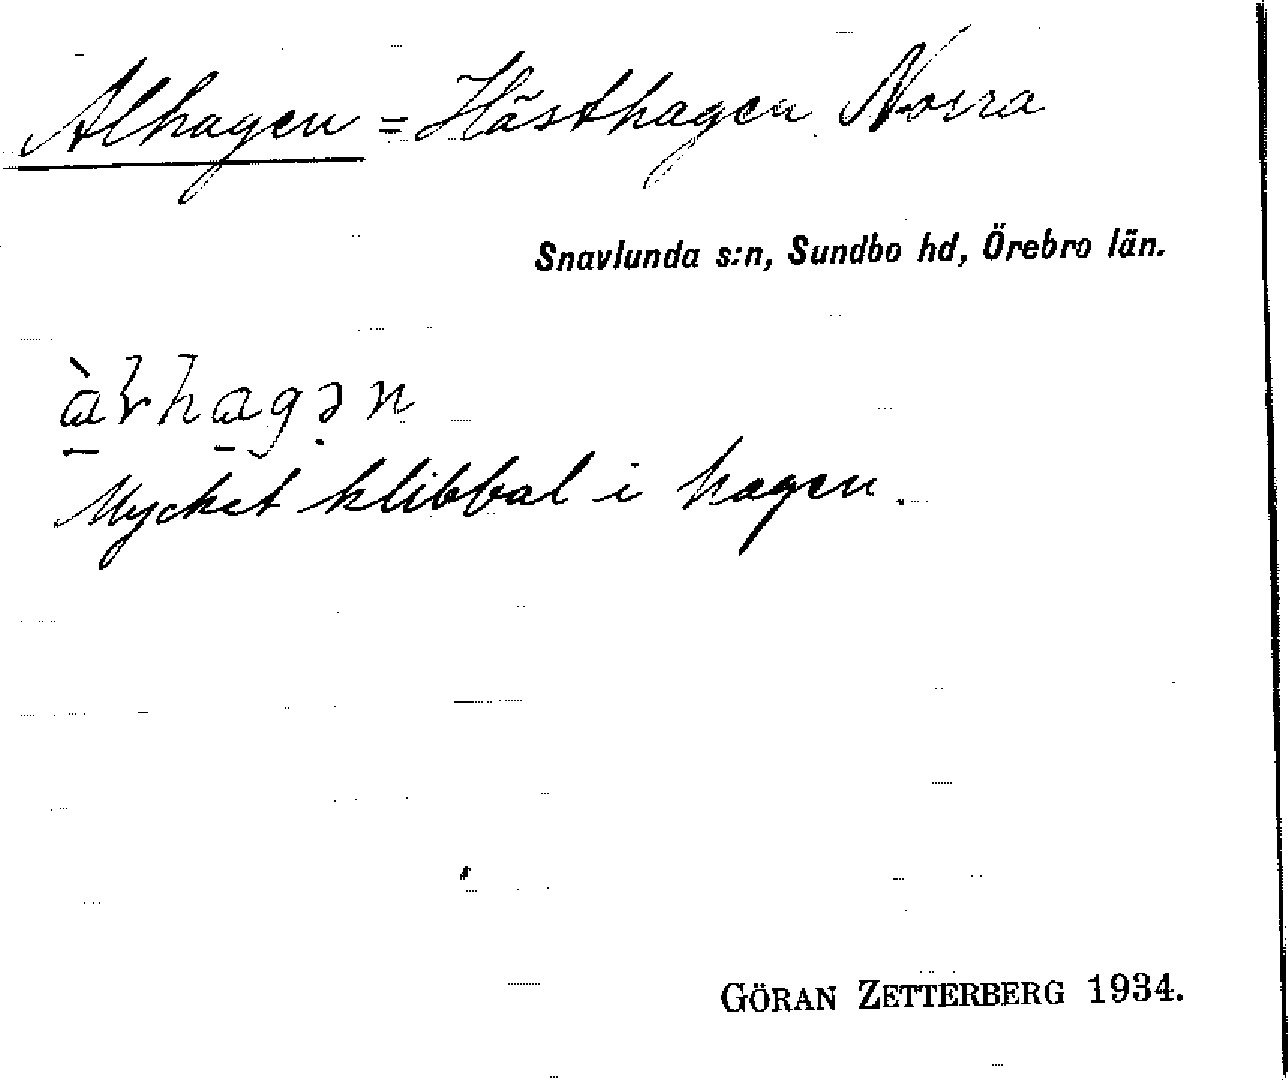 Alhagen = Hästhagen Norra
Snavlunda s:n, Sundbo hd, Örebro län.
Mycket klibbal i hagen.
GÖRAN ZETTERBERG 1934.